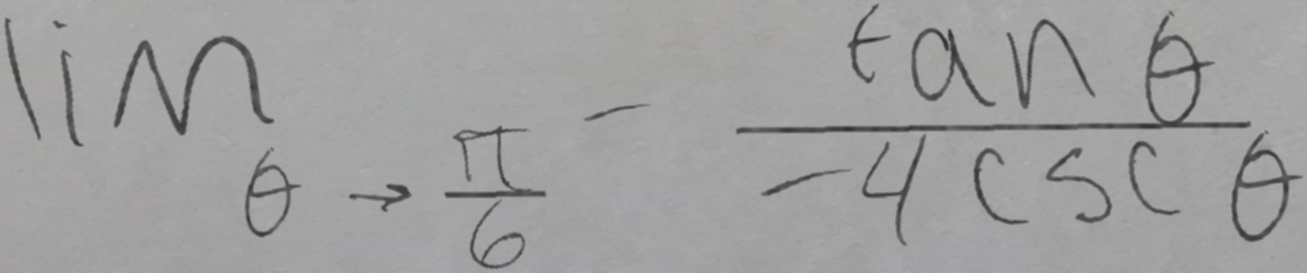 \lim_{\theta \to \frac{\pi}{6}^-} \frac{\tan \theta}{-4 \csc \theta}